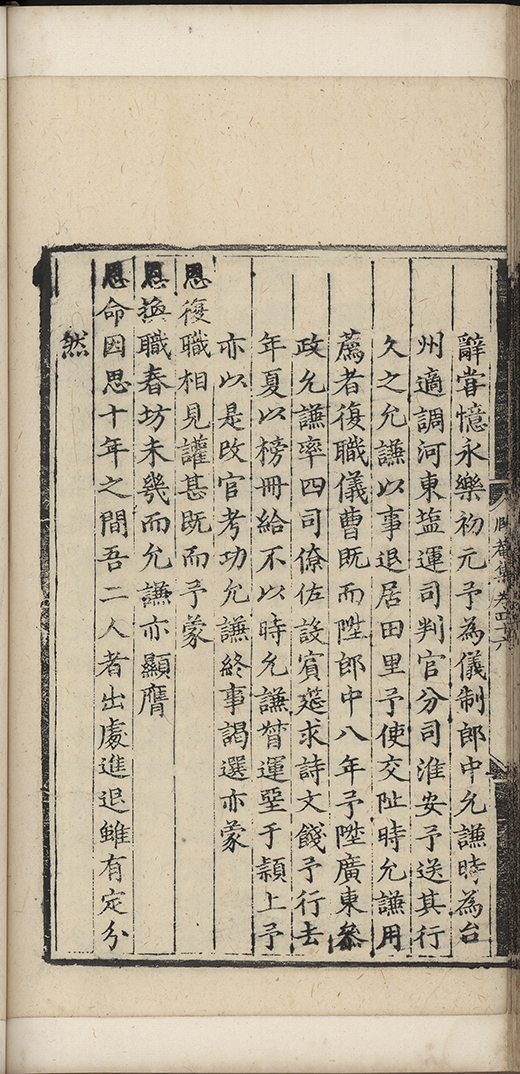 辭嘗憶永樂初元予為儀制郎中允謙時為台
州適調河東塩運司判官分司淮安予送其行
久之允謙以事退居田里予使交阯時允謙用
薦者復職儀曹既而陞郎中八年予陞廣東叅
政允謙率四司僚佐設賓筵求詩文餞予行去
年夏以榜冊給不以時允謙督運堊于潁上予
亦以是改官考功允謙終事謁選亦蒙
恩復職相見讙甚既而予蒙
恩換職春坊未幾而允謙亦顯膺
恩命因思十年之間吾二人者出處進退雖有定分
然
集卷四六